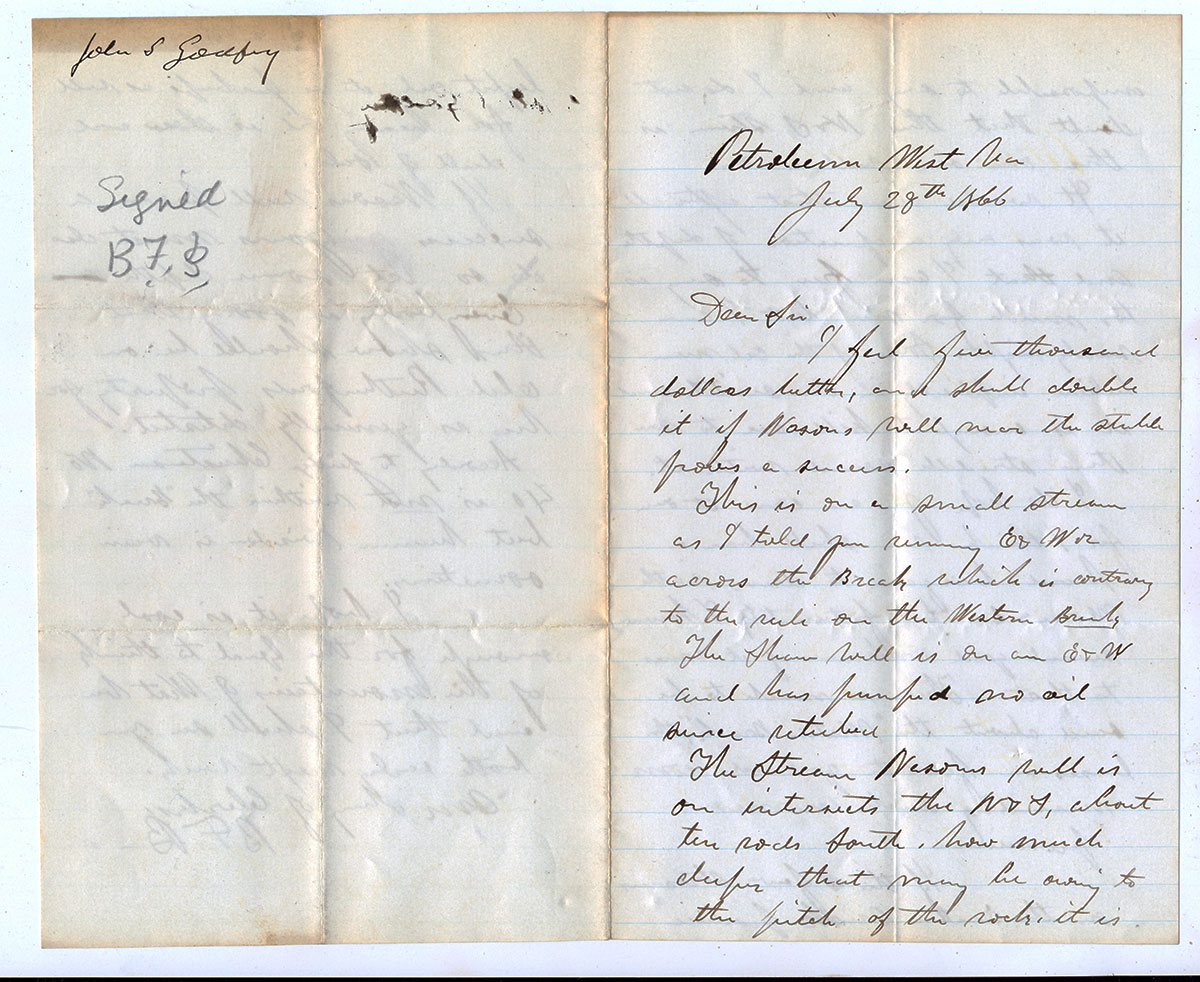 John S Godfrey
Signed
B F. B
Petroleum West Va
July 28th 1866
Dear Sir
I feel five thousand
dollars better, and shall double
it if Nasons well near the stable
proves a success.
This is on a small stream
as I told you running E & W or
across the Break which is contrary
to the rule on the Western Break
The Shaw well is on an E & W
and has pumped no oil
since retubed
The Stream Nasons well is
on intersects the N & S, about
ten rods South, how much
deeper that may be owing to
the pitch of the rock, it is